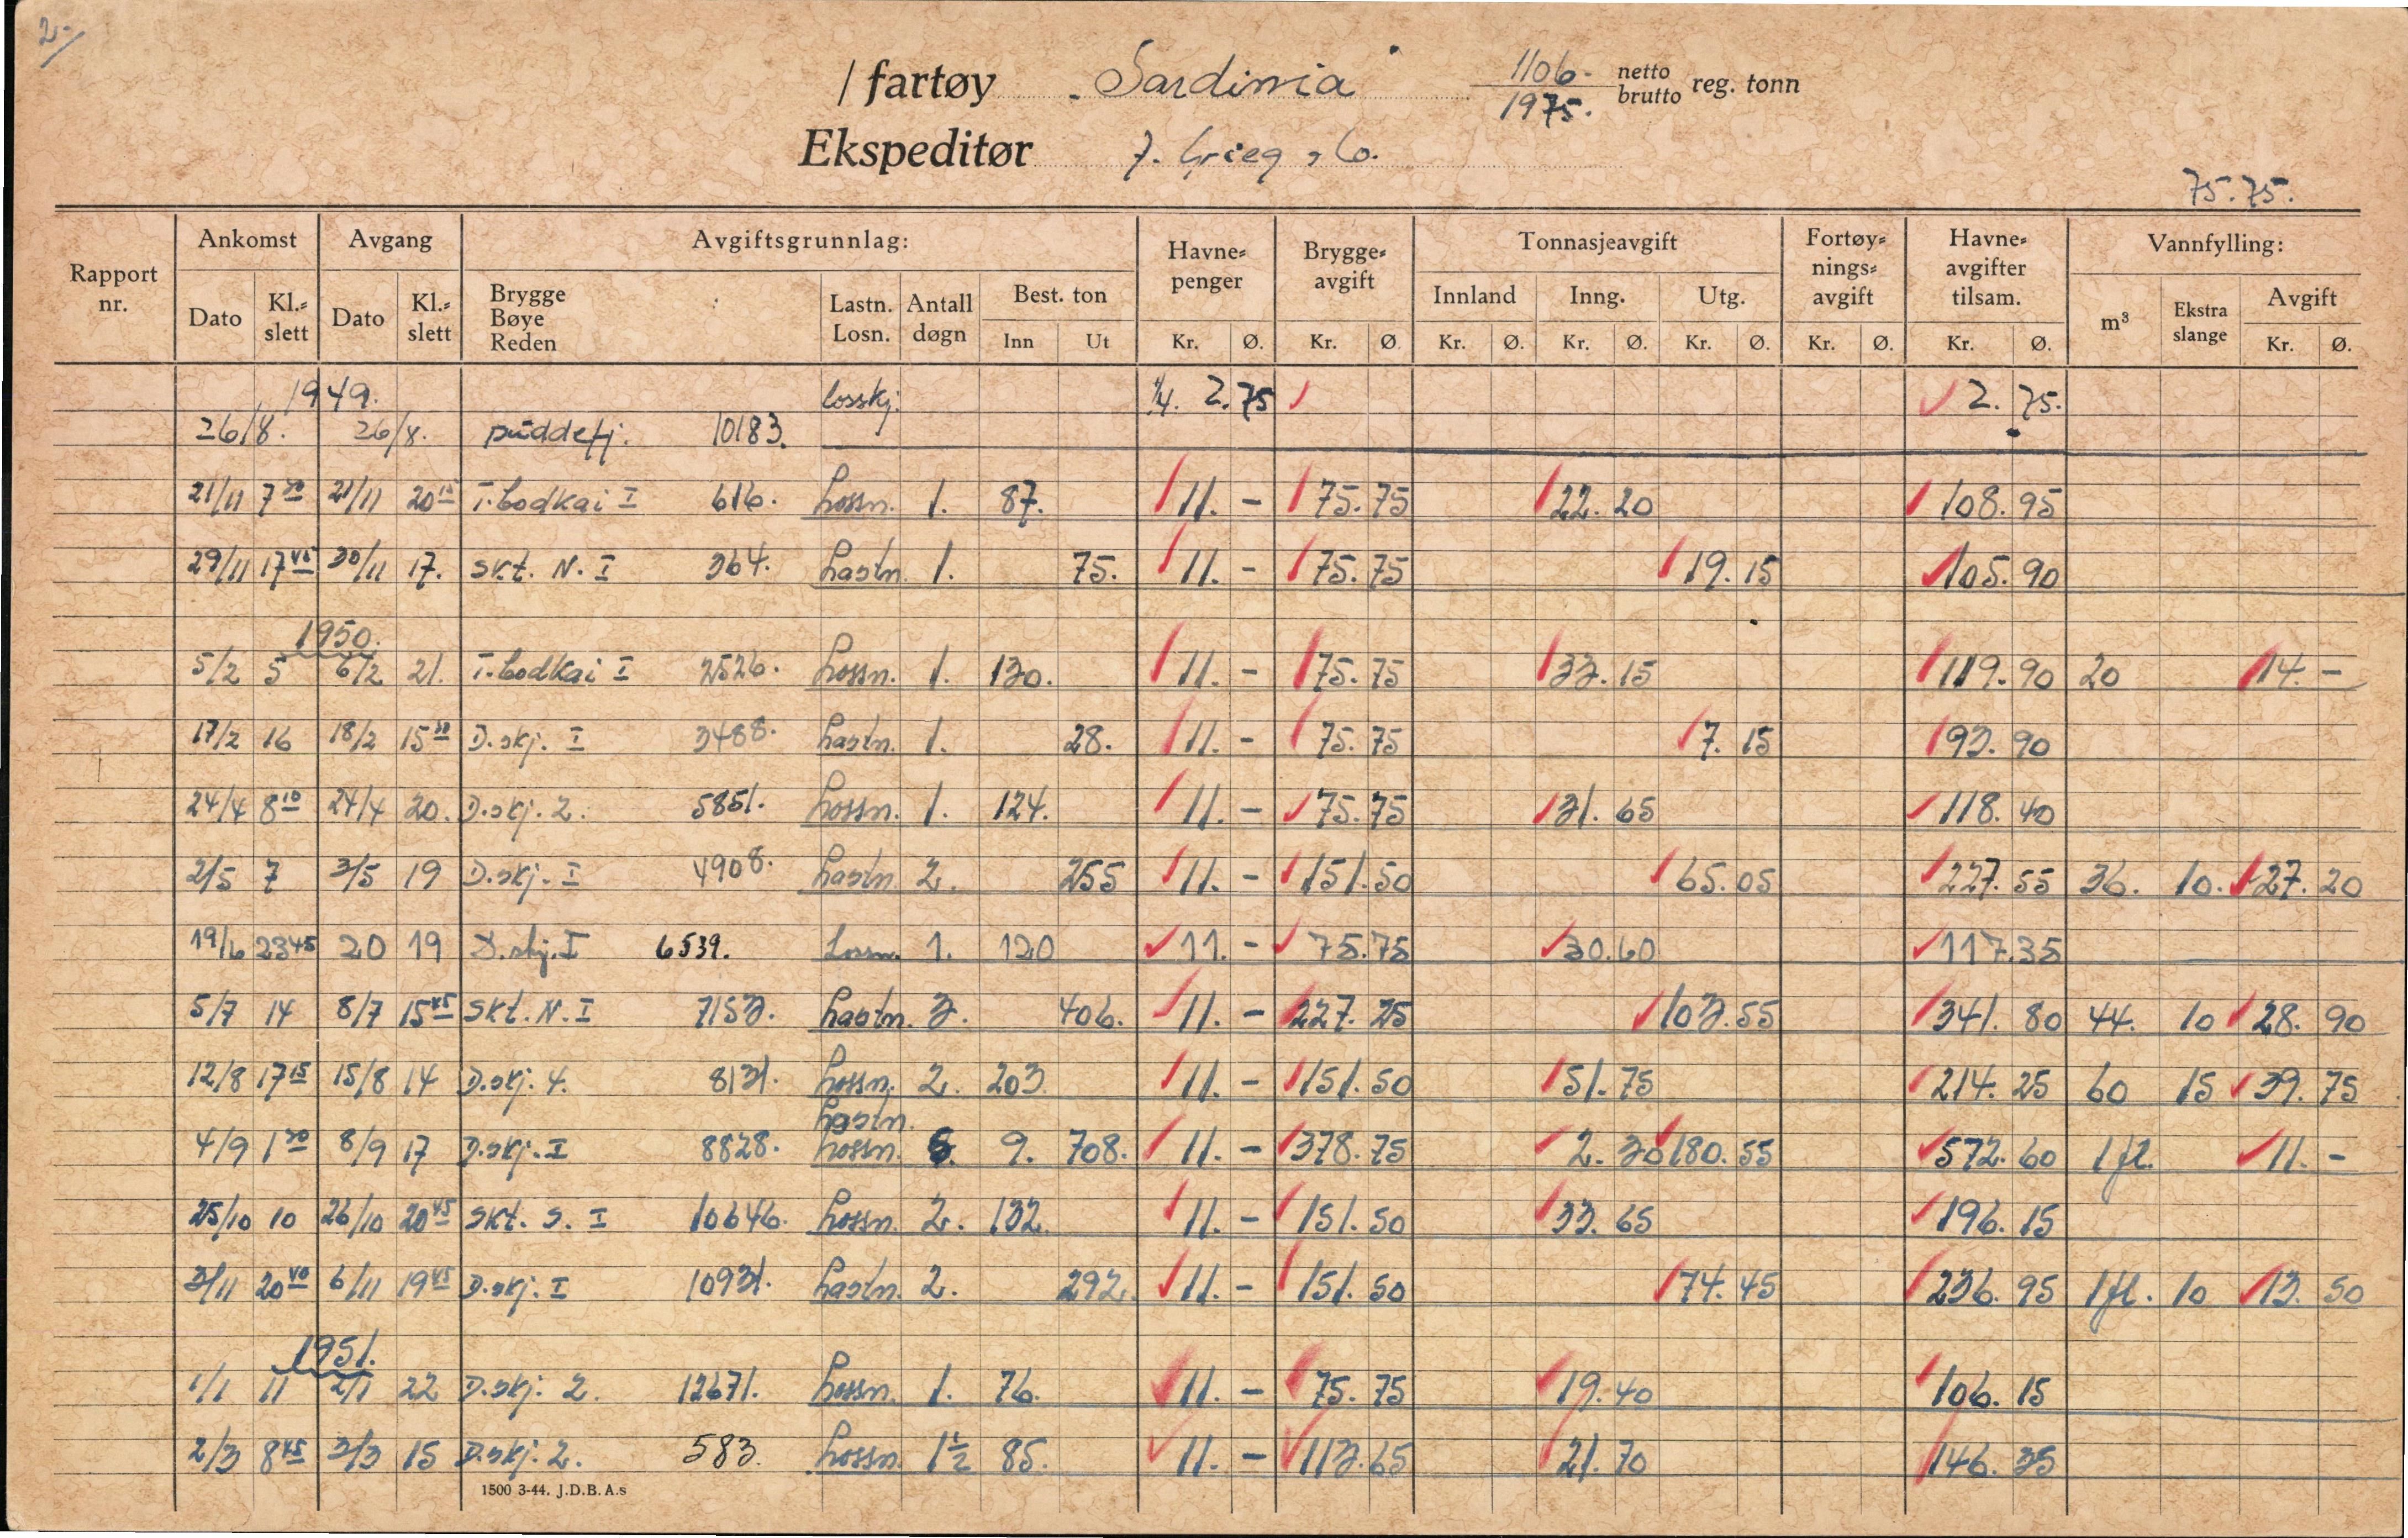 2.-
/ fartøy „Sardinia" 1106.- netto
1975. brutto reg. tonn
Ekspeditør J. Grieg & Co.
75.75.
Rapport nr. Ankomst Avgang Avgiftsgrunnlag: Havne-penger Brygge-avgift Tonnasjeavgift Fortøy-nings-avgift Havne-avgifter tilsam. Vannfylling:
Dato Kl.-slett Dato Kl.-slett Brygge Bøye Reden Lastn. Losn. Antall døgn Best. ton Innland Inng. Utg. m³ Ekstra slange Avgift
Inn Ut Kr. Ø. Kr. Ø. Kr. Ø. Kr. Ø. Kr. Ø. Kr. Ø. Kr. Ø. Kr. Ø.
1949. losskj. 1/4. 2.75 2.75.
26/8. 26/8. puddefj. 10183.
21/11 7 30 21/11 20 15 T.bodkai I 616. Lossn. 1. 87. 11. - 75.75 22.20 108.95
29/11 17 45 30/11 17. Skt. N. I 364. Lastn. 1. 75. 11. - 75.75 19.15 105.90
1950.
5/2 5 6/2 21. T.bodkai I 2526. Lossn. 1. 130. 11. - 75.75 33.15 119.90 20 14. -
17/2 16 18/2 15 30 D.skj. I 3488. Lastn. 1. 28. 11. - 75.75 7.15 93.90
24/4 8 10 24/4 20. D.skj. 2. 5851. Lossn. 1. 124. 11. - 75.75 31.65 118.40
2/5 7 3/5 19 D.skj. I 4908. Lastn. 2. 255 11. - 151.50 65.05 227.55 36. 10. 27.20
19/6 23 45 20 19 D.skj. I 6539. Lossn. 1. 120 11. - 75.75 30.60 117.35
5/7 14 8/7 15 45 Skt. N. I 7153. Lastn. 3. 406. 11. - 227.25 103.55 341.80 44. 10 28.90
12/8 17 15 15/8 14 D.skj. 4. 8131. Lossn. 2. 203 11. - 151.50 51.75 214.25 60 15 39.75
Lastn.
4/9 1 30 8/9 17 D.skj. I 8828. Lossn. 5. 9. 708. 11. - 378.75 2.30 180.55 572.60 1 fl. 11. -
25/10 10 26/10 20 45 Skt. S. I 10646. Lossn. 2. 132. 11. - 151.50 33.65 196.15
3/11 20 40 6/11 19 45 D.skj. I 10931. Lastn. 2. 292. 11. - 151.50 74.45 236.95 1 fl. 10 13.50
1951.
1/1 11 2/1 22 D.skj. 2. 12671. Lossn. 1. 76. 11. - 75.75 19.40 106.15
2/3 8 45 3/3 15 D.skj. 2. 583. Lossn. 1½ 85. 11. - 113.65 21.70 146.35
1500 3-44. J.D.B.A.s